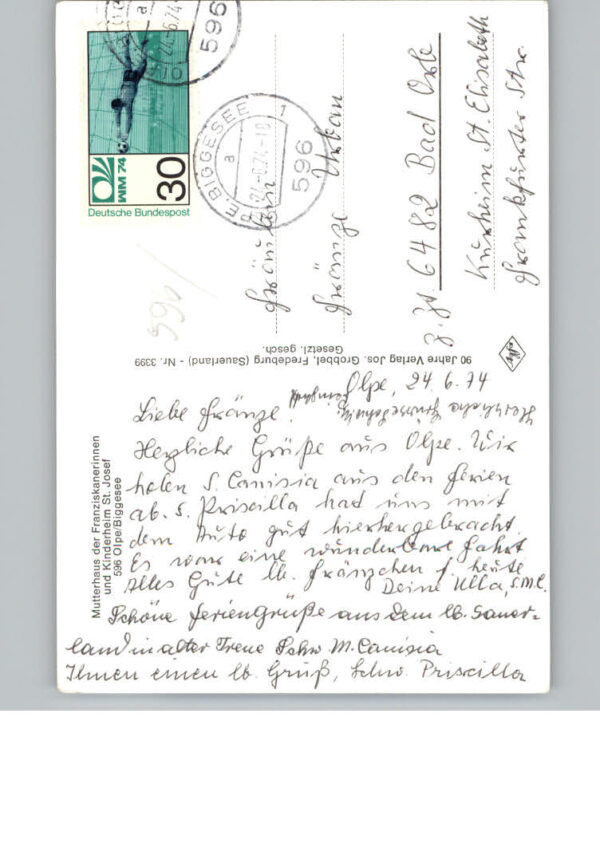 30
WM 74
Deutsche Bundespost
596
24.6.74
BIGGESEE 1
a
24.-6.74-18
596
596/
Fräulein
Fränze Urban
z. Zt 6482 Bad Orb
Kurheim St. Elisabeth
Frankfurter Str.
90 Jahre Verlag Jos. Grobbel, Fredeburg (Sauerland) - Nr. 3399
Gesetzl. gesch.
Mutterhaus der Franziskanerinnen
und Kinderheim St. Josef
596 Olpe/Biggesee
Olpe, 24.6.74
Liebe Fränze!
Herzliche Grüße
Herzliche Grüße aus Olpe. Wir
holen S. Canisia aus den Ferien
ab. S. Priscilla hat uns mit
dem Auto gut hierhergebracht
Es war eine wunderbare Fahrt
Alles Gute lb. Fränzchen f. heute
Deine Ulla, S.M.C.
Schöne Feriengrüße aus dem lb. Sauer-
land in alter Treue Schw. M. Canisia
Ihnen einen lb. Gruß, Schw. Priscilla